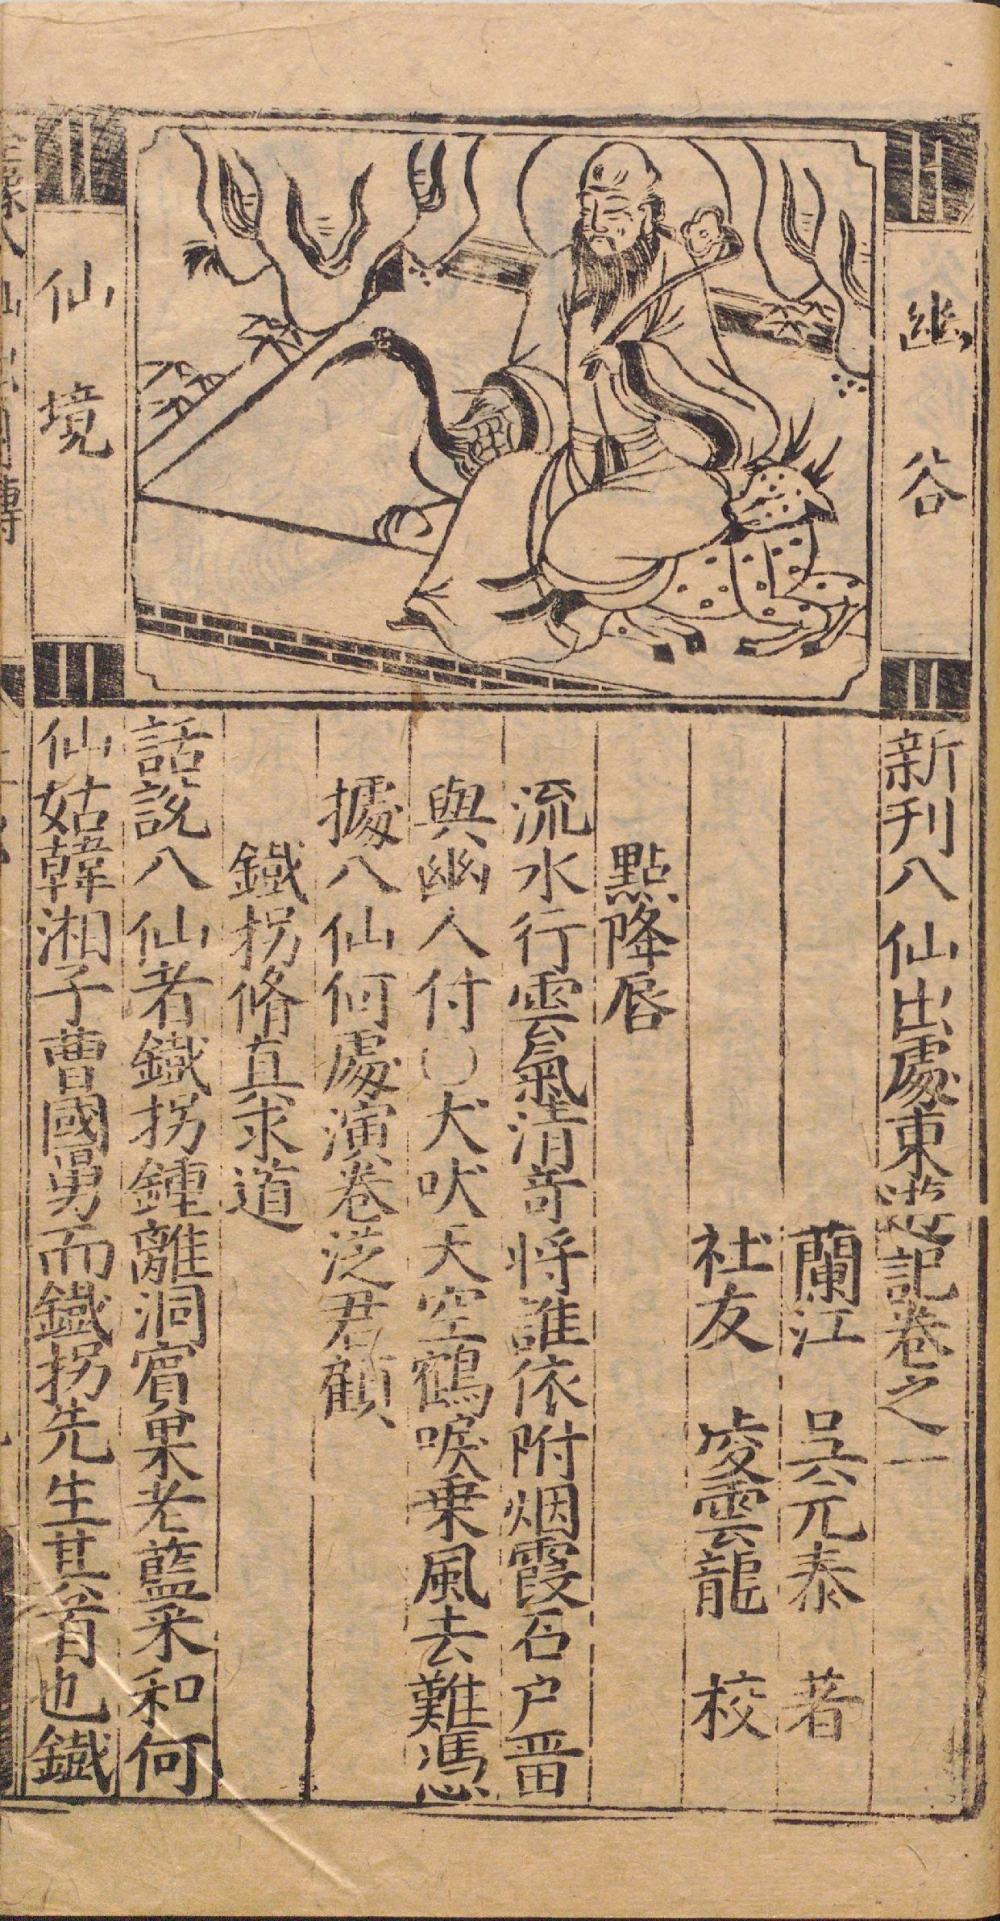 幽谷
仙境
新刊八仙出處東遊記卷之一
蘭江 吳元泰 著
社友 凌雲龍 校
點降唇
流水行雲氣清奇將誰依附烟霞石户畱
與幽人付〇犬吠天空鶴唳乗風去難馮
據八仙何處演卷泛君顧
鐵拐脩真求道
話說八仙者鐵拐鍾離洞賓果老藍采和何
仙姑韓湘子曹國舅而鐵拐先生其首也鐵